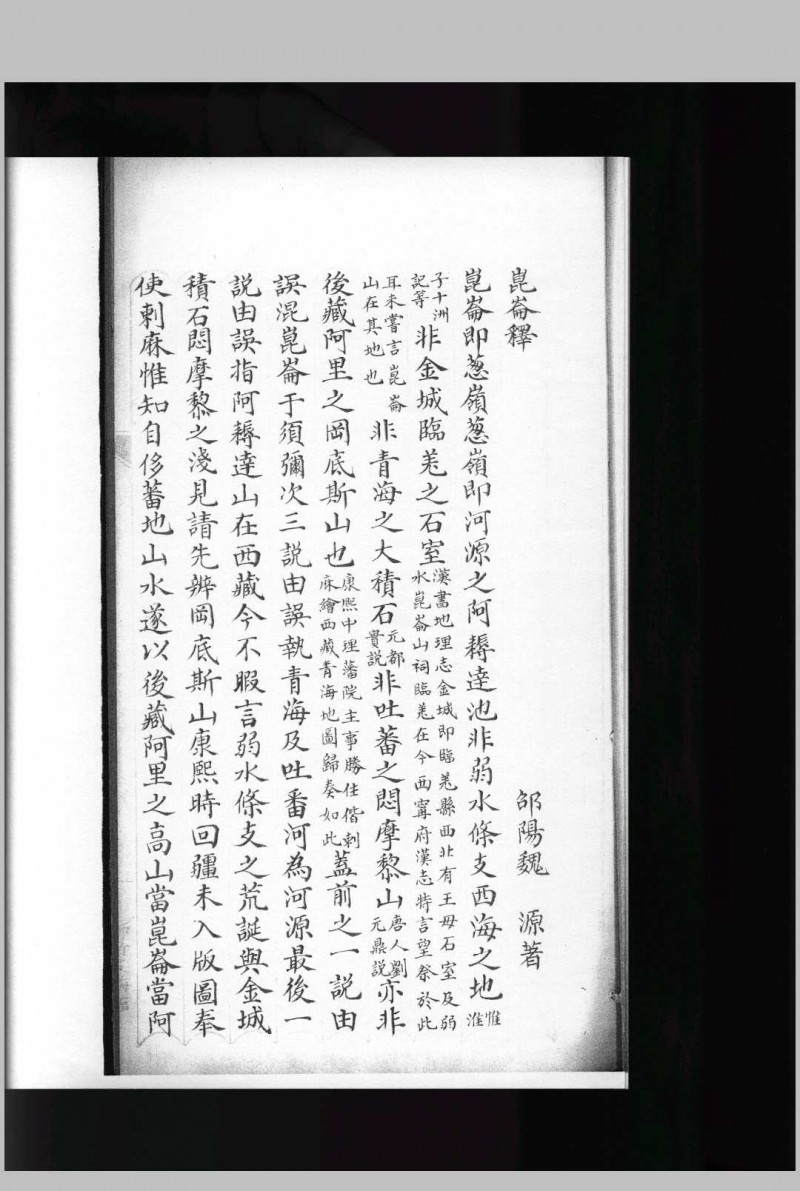 崑崙釋
邵陽魏 源著
崑崙即葱嶺葱嶺即河源之阿耨達池非弱水條支西海之地惟淮
子十洲記等非金城臨羌之石室漢書地理志金城即臨羌縣西北有王母石室及弱水崑崙山祠臨羌在今西寧府漢志特言望祭於此
耳未嘗言崑崙山在其地也非青海之大積石元都實說非吐蕃之悶摩黎山唐人劉元鼎說亦非
後藏阿里之岡底斯山也康熙中理藩院主事勝住偕剌麻繪西藏青海地圖歸奏如此蓋前之一說由
誤混崑崙于須彌次三說由誤執青海及吐番河為河源最後一
說由誤指阿耨達山在西藏今不暇言弱水條支之荒誕與金城
積石悶摩黎之淺見請先辨岡底斯山康熙時回疆未入版圖奉
使剌麻惟知自侈蕃地山水遂以後藏阿里之高山當崑崙當阿